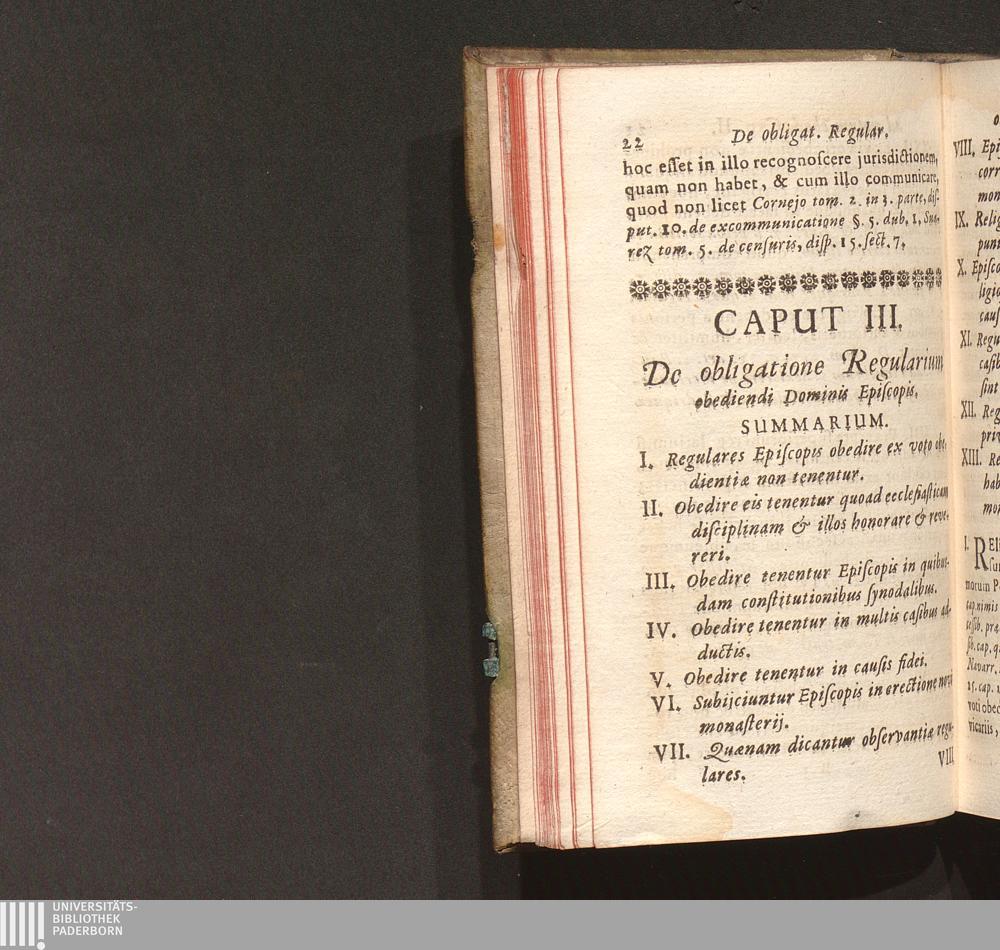 22 De obligat. Regular.
hoc eſſet in illo recognoſcere jurisdictionem,
quam non habet, & cum illo communicare,
quod non licet Cornejo tom. 2. in 3. parte, diſ-
put. 10. de excommunicatione §. 5. dub. 1. Sua-
rez tom. 5. de cenſuris, diſp. 15. ſect. 7.
CAPUT III.
De obligatione Regularium
obediendi Dominis Epiſcopis.
SUMMARIUM.
I. Regulares Epiſcopis obedire ex voto obe-
dientiæ non tenentur.
II. Obedire eis tenentur quoad eccleſiaſticam
diſciplinam & illos honorare & reve-
reri.
III. Obedire tenentur Epiſcopis in quibus-
dam conſtitutionibus ſynodalibus.
IV. Obedire tenentur in multis caſibus ad-
ductis.
V. Obedire tenentur in cauſis fidei.
VI. Subijciuntur Epiſcopis in erectione novi
monaſterij.
VII. Quænam dicantur obſervantiæ regu-
lares.
VIII.
VIII. Epi
corr
mon
IX. Relig
pun
X. Epiſco
ligio
cauſ
XI. Regu
caſib
ſint
XII. Reg
priv
XIII. Re
hab
mon
I. REli
ſun
morum P
cap. nimis
Navarr.
25. cap. 1
voti obed
vicariis,
UNIVERSITÄTS-
BIBLIOTHEK
PADERBORN